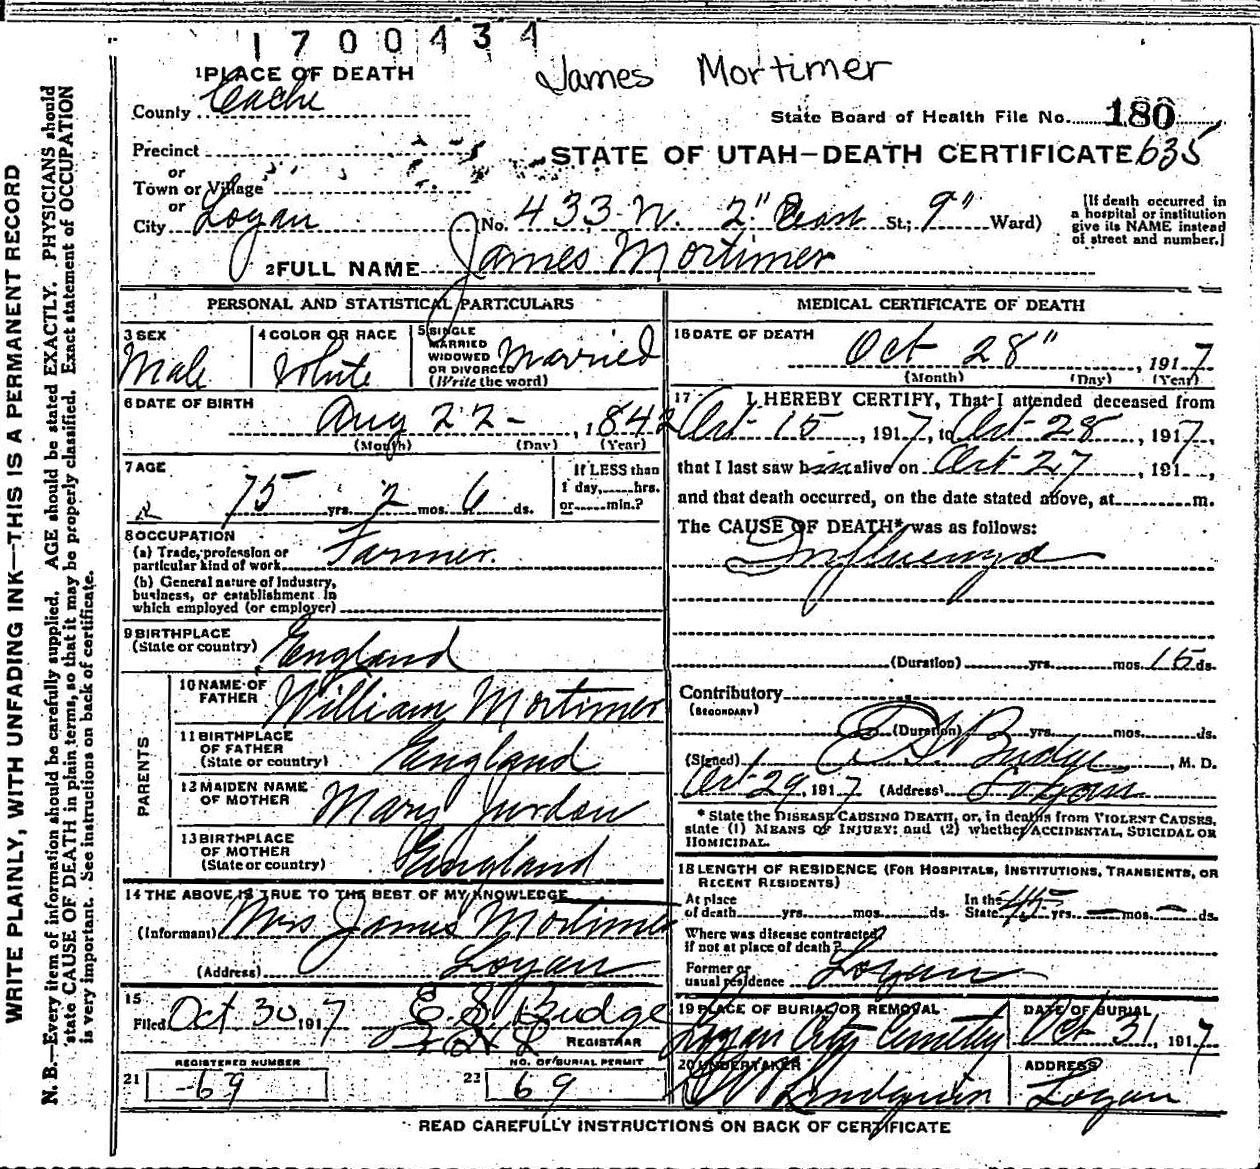 1700434
James Mortimer
1 PLACE OF DEATH
County Cache
State Board of Health File No. 180
Precinct
or
Town or Village
or
City Logan
STATE OF UTAH—DEATH CERTIFICATE 635
(No. 433 N. 2" East St; 9" Ward)
[If death occurred in
a hospital or institution
give its NAME instead
of street and number.]
2 FULL NAME James Mortimer
PERSONAL AND STATISTICAL PARTICULARS
3 SEX
Male
4 COLOR OR RACE
White
5 SINGLE
MARRIED
WIDOWED
OR DIVORCED
(Write the word)
Married
6 DATE OF BIRTH
Aug 22 - , 1842
(Month) (Day) (Year)
7 AGE
75 yrs. 2 mos. 6 ds.
If LESS than
1 day, hrs.
or min.?
8 OCCUPATION
(a) Trade, profession or
particular kind of work Farmer.
(b) General nature of Industry,
business, or establishment in
which employed (or employer)
9 BIRTHPLACE
(State or country) England
PARENTS
10 NAME OF
FATHER William Mortimer
11 BIRTHPLACE
OF FATHER
(State or country) England
12 MAIDEN NAME
OF MOTHER Mary Jurdon
13 BIRTHPLACE
OF MOTHER
(State or country) England
14 THE ABOVE IS TRUE TO THE BEST OF MY KNOWLEDGE
(Informant) Mrs James Mortimer
(Address) Logan
15
Filed Oct 30 1917 E. S. Budge
REGISTRAR
REGISTERED NUMBER
21 -69
NO. OF BURIAL PERMIT
22 69
MEDICAL CERTIFICATE OF DEATH
16 DATE OF DEATH
Oct 28" , 1917
(Month) (Day) (Year)
17 I HEREBY CERTIFY, That I attended deceased from
Oct 15 , 1917, to Oct 28 , 1917,
that I last saw him alive on Oct 27 , 191 ,
and that death occurred, on the date stated above, at m.
The CAUSE OF DEATH* was as follows:
Influenza
(Duration) yrs. mos. 15 ds.
Contributory
(SECONDARY)
(Duration) yrs. mos. ds.
(Signed) E S Budge , M. D.
Oct 29, 1917 (Address) Logan
* State the DISEASE CAUSING DEATH, or, in deaths from VIOLENT CAUSES,
state (1) MEANS OF INJURY; and (2) whether ACCIDENTAL, SUICIDAL OR
HOMICIDAL.
18 LENGTH OF RESIDENCE (FOR HOSPITALS, INSTITUTIONS, TRANSIENTS, OR
RECENT RESIDENTS)
At place
of death yrs. mos. ds.
In the
State 45 yrs. — mos. — ds.
Where was disease contracted,
if not at place of death?
Former or
usual residence Logan
19 PLACE OF BURIAL OR REMOVAL
Logan City Cemetery
DATE OF BURIAL
Oct 31, 1917
20 UNDERTAKER
ADDRESS
Logan
READ CAREFULLY INSTRUCTIONS ON BACK OF CERTIFICATE
WRITE PLAINLY, WITH UNFADING INK—THIS IS A PERMANENT RECORD
N. B.—Every item of information should be carefully supplied. AGE should be stated EXACTLY. PHYSICIANS should
state CAUSE OF DEATH in plain terms, so that it may be properly classified. Exact statement of OCCUPATION
is very important. See instructions on back of certificate.